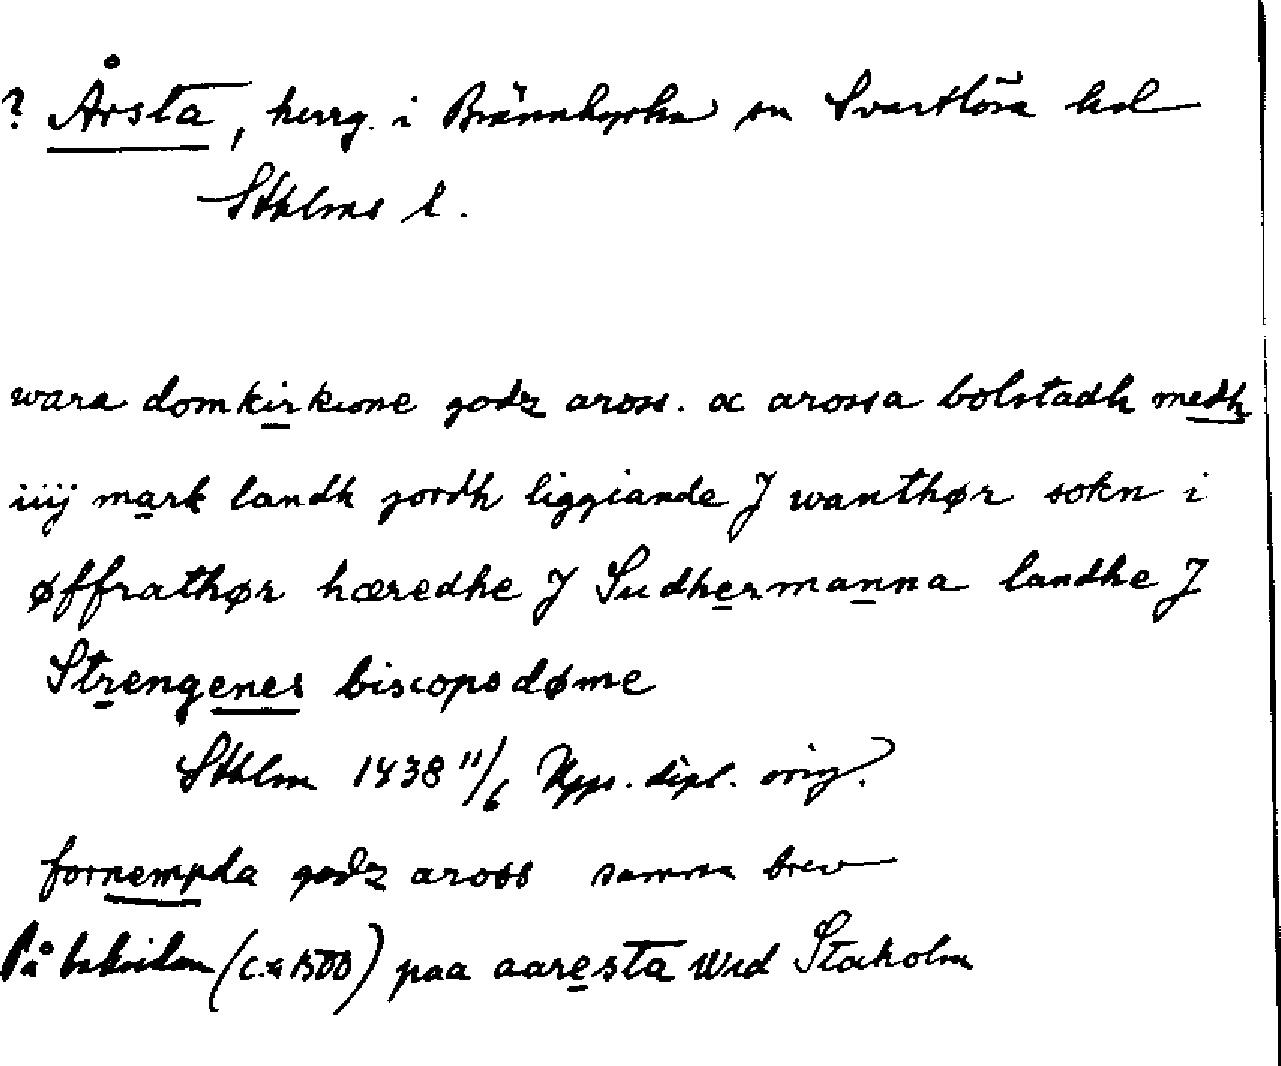 ? Årsta, herrg. i Brännkyrka sn Svartlösa hd
Sthlms l.
wara domkirkione godz aross. oc arossa bolstadh medh
iiij mark landh jordh liggiande J wanthør sokn i
øffrathør hæredhe J Sudhermanna landhe J
Strengenes biscopsdøme
Sthlm 1438 11/6 Upps. dipl. orig.
fornempda godz aross samma brev
På baksidan (c:a 1500) paa aaresta wid Stokholm